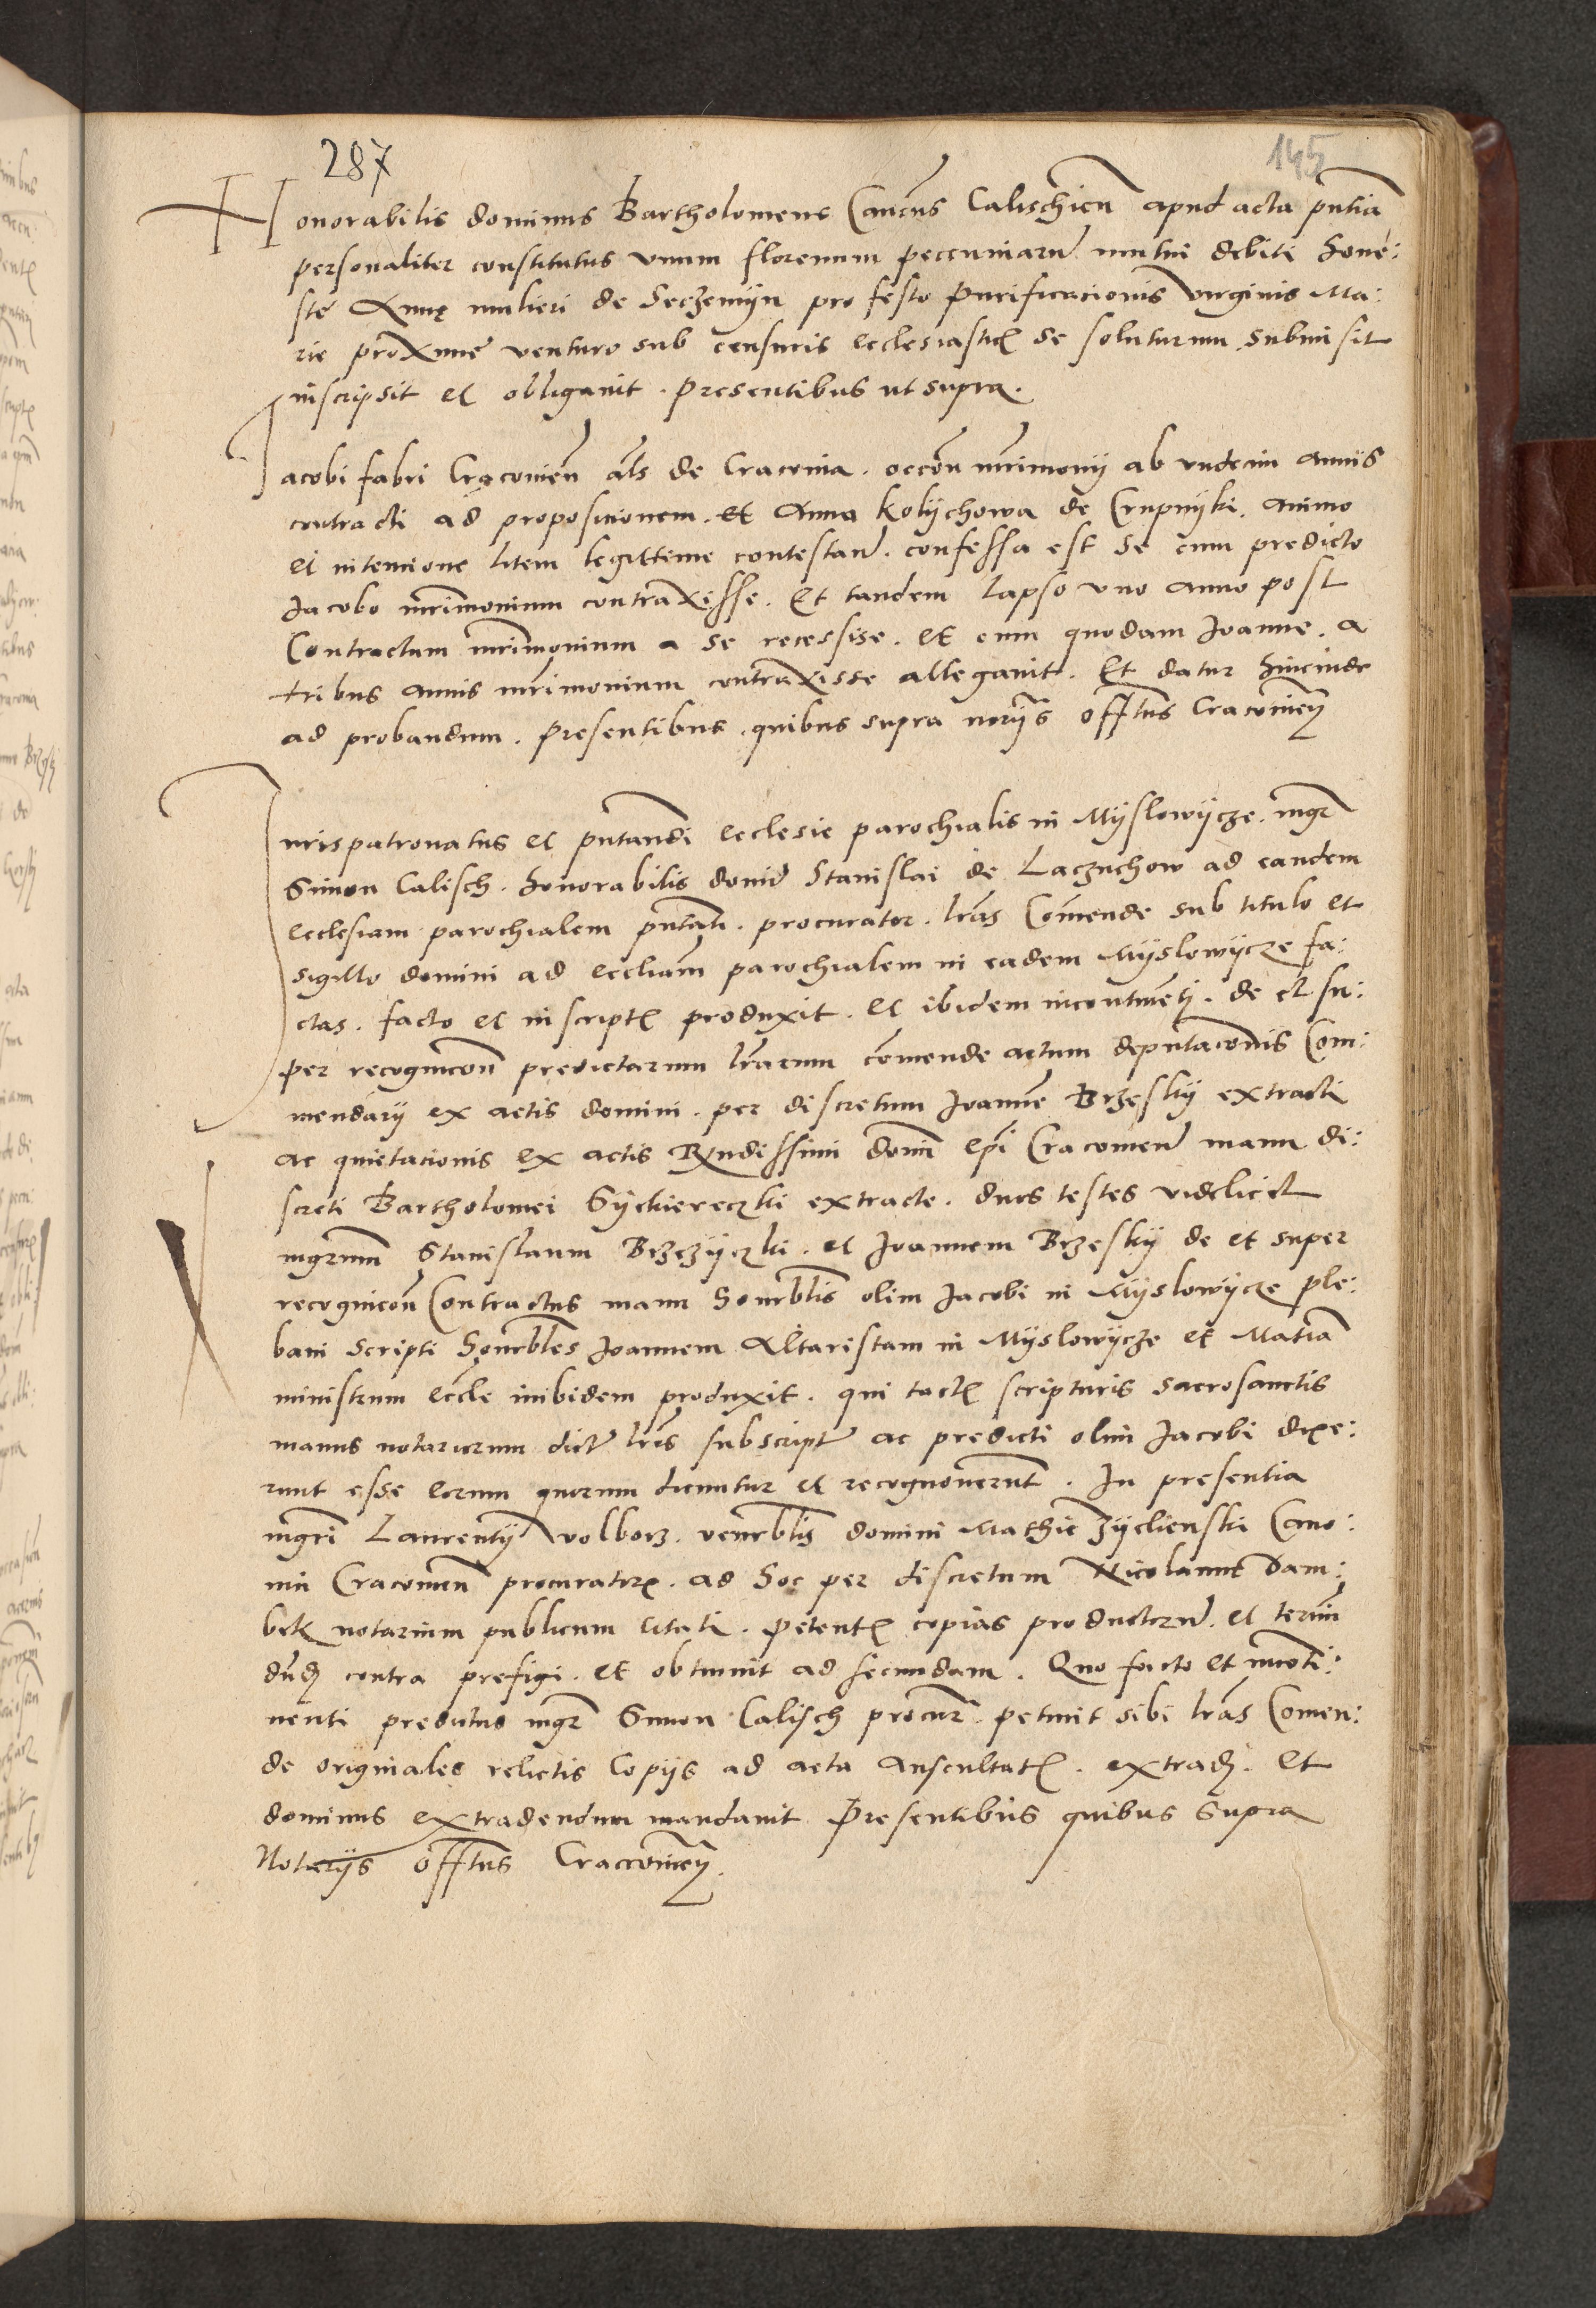 287
145
Honorabilis dominus Bartholomeus Cancus Calischien apud acta pntia
personaliter constitutus vnum florenum peccuniaru mutui debiti hone:
ste Anne mulieri de Seczemyn pro festo Purificacionis virginis Ma:
rie proxime venturo sub censuris ecclesiastic se soluturum submisit
inscripsit et obligauit . Presentibus ut supra.
Jacobi fabri Cracouien als de Cracouia . occon mrimonij ab vndecim annis
contracti ad propositionem . et Anna Kolychowa de Crupnyki . animo
et intencione litem legitteme contestan . confessa est se cum predicto
Jacobo mrimonium contraxisse . Et tandem lapso vno anno post
Contractum mrimonium a se recessise . et cum quodam Joanne . a
tribus annis mrimonium contraxisse allegauit . Et datur hincinde
ad probandum . Presentibus . quibus supra norijs offtus Cracouien
Jurispatronatus et pntandi ecclesie parochialis in Myslowycze . mgr
Simon Calisch . honorabilis domi Stanislai de Laczuchow ad eandem
ecclesiam parochialem pntati . procurator . lras Comende sub titulo et
sigillo domini ad eccliam parochialem in eadem Myslowycze fa:
ctas . facto et in script produxit . et ibidem incontinenti . de et su:
per recognicon predictarum lrarum comende actum deputacionis Com:
mendarij ex actis domini . per discretum Joanne Brzesky extracti
ac quietacionis ex actis Rndissimi domi epi Cracouien manu di:
screti Bartholomei Gyckiereczki extracte . duos testes videlicet
mgrum Stanislaum Brzezyczki . et Joannem Brzesky de et super
recognicon Contractus manu honrblis olim Jacobi in Myslowycze ple:
bani scripti honrbles Joannem Altaristam in Myslowycze et Matia
ministrum eccle inibidem produxit . qui tact scripturis sacrosanctis
manus notariorum dict lris subscript ac predicti olim Jacobi dixe:
runt esse eorum quorum dicuntur et recognouerunt . In presentia
mgri Laurentij Wolborz . venrblis domini Mathie Zyelienski Cano:
nici Cracouien procuratoris . ad hoc per discretum Nicolaum Dam:
bek notarium publicum citati . petent copias productoru . et termi
dnd contra prefigi . et obtinuit ad secundam . Quo facto et inconti:
nenti predictus mgr Simon Calisch procur . petiuit sibi lras Comen:
de originales relictis copijs ad acta auscultat . extrad . et
dominus extradendum mandauit Presentibus quibus supra
Notarijs offtus Cracouien.